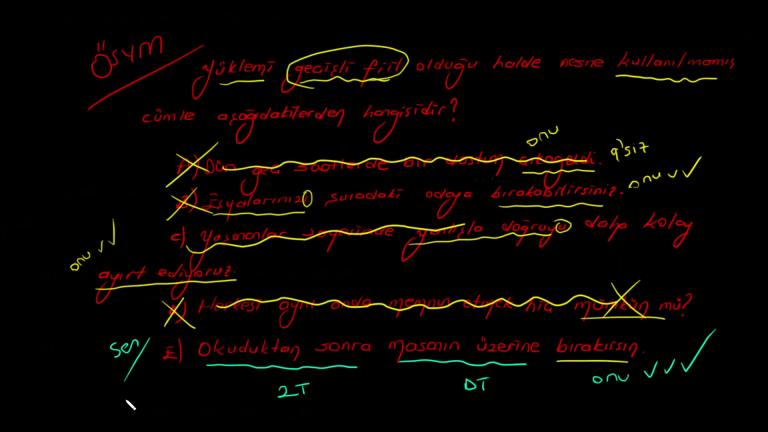 Ösym
Yüklemi geçişli fiil olduğu halde nesne kullanılmamış
cümle aşağıdakilerden hangisidir?
onu
A) Dün geç saatlerde bir dostum q'siz
onu ✓✓
B) Eşyalarınızı şuradaki odaya bırakabilirsiniz.
C) yanlışla doğruyu daha kolay
onu ✓✓
ayırt ediyoruz.
D) Herkesi aynı anda memnun etmek mümkün mü?
Sen E) Okuduktan sonra masanın üzerine bırakırsın.
2T DT onu ✓✓✓